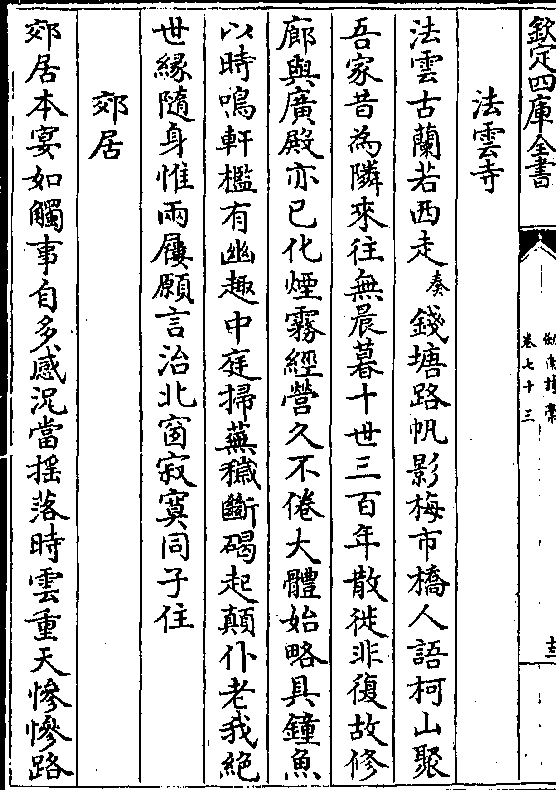 欽定四庫全書
卷七十三
法雲寺
法雲古蘭若西走奏錢塘路帆影梅市橋人語柯山聚
吾家昔為隣來往無晨暮十世三百年散徙非復故修
廊與廣殿亦已化煙霧經營久不倦大體始略具鐘魚
以時鳴軒檻有幽趣中庭掃蕪穢斷碣起顛仆老我絶
世緣隨身惟兩屨願言治北窗寂寞同子住
郊居
郊居本宴如觸事自多感況當摇落時雲重天慘慘路